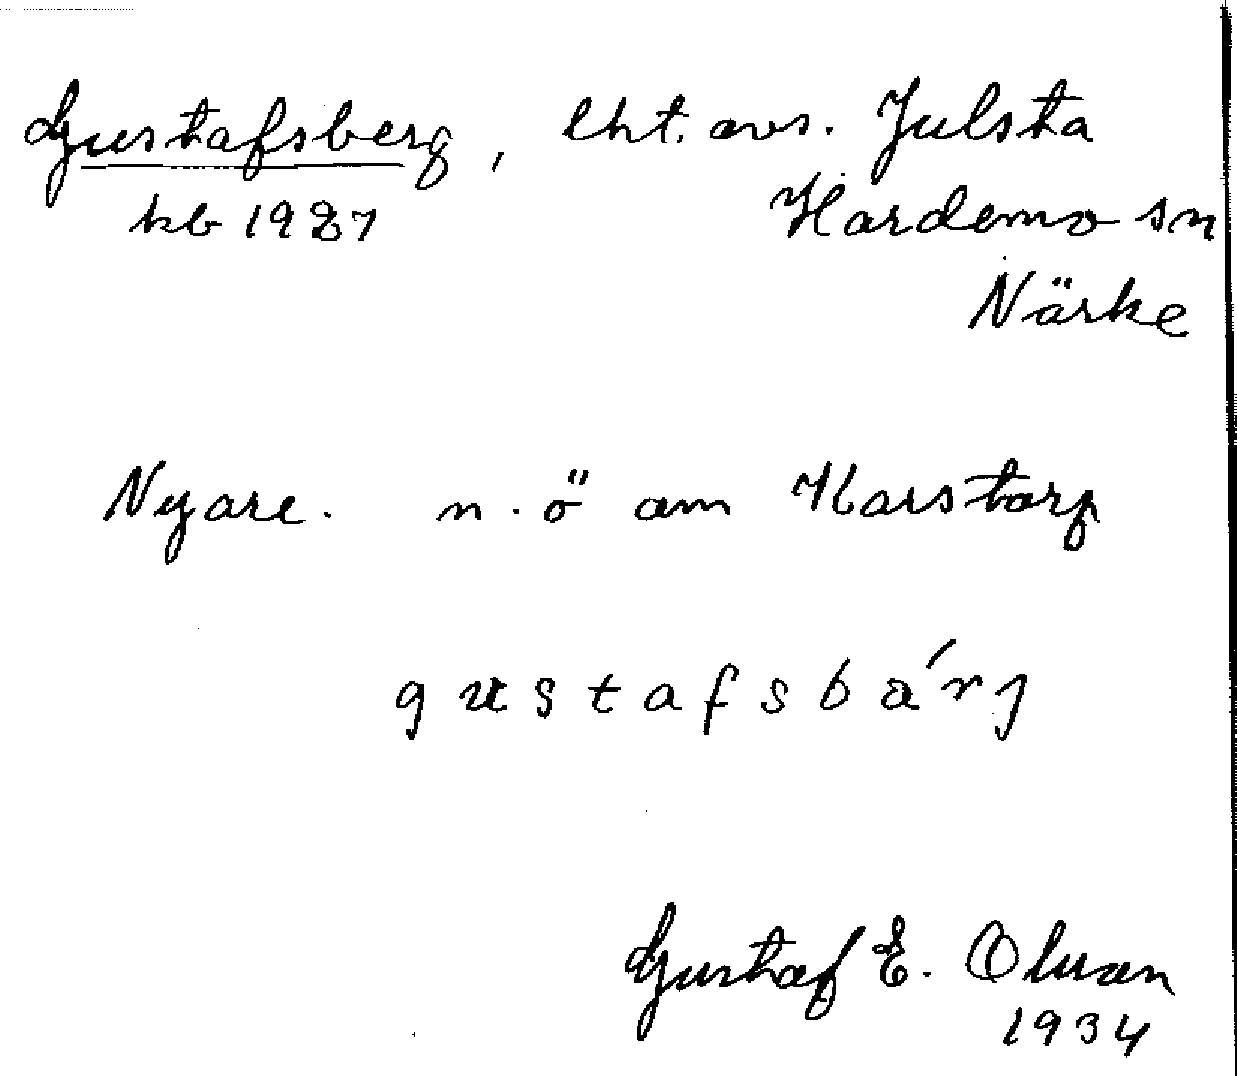 Gustafsberg, lht. avs. Julsta
kb 1927 Hardemo sn
Närke
Nyare. n.ö om Karstorp
gustafsbárj
Gustaf E. Olsson
1934